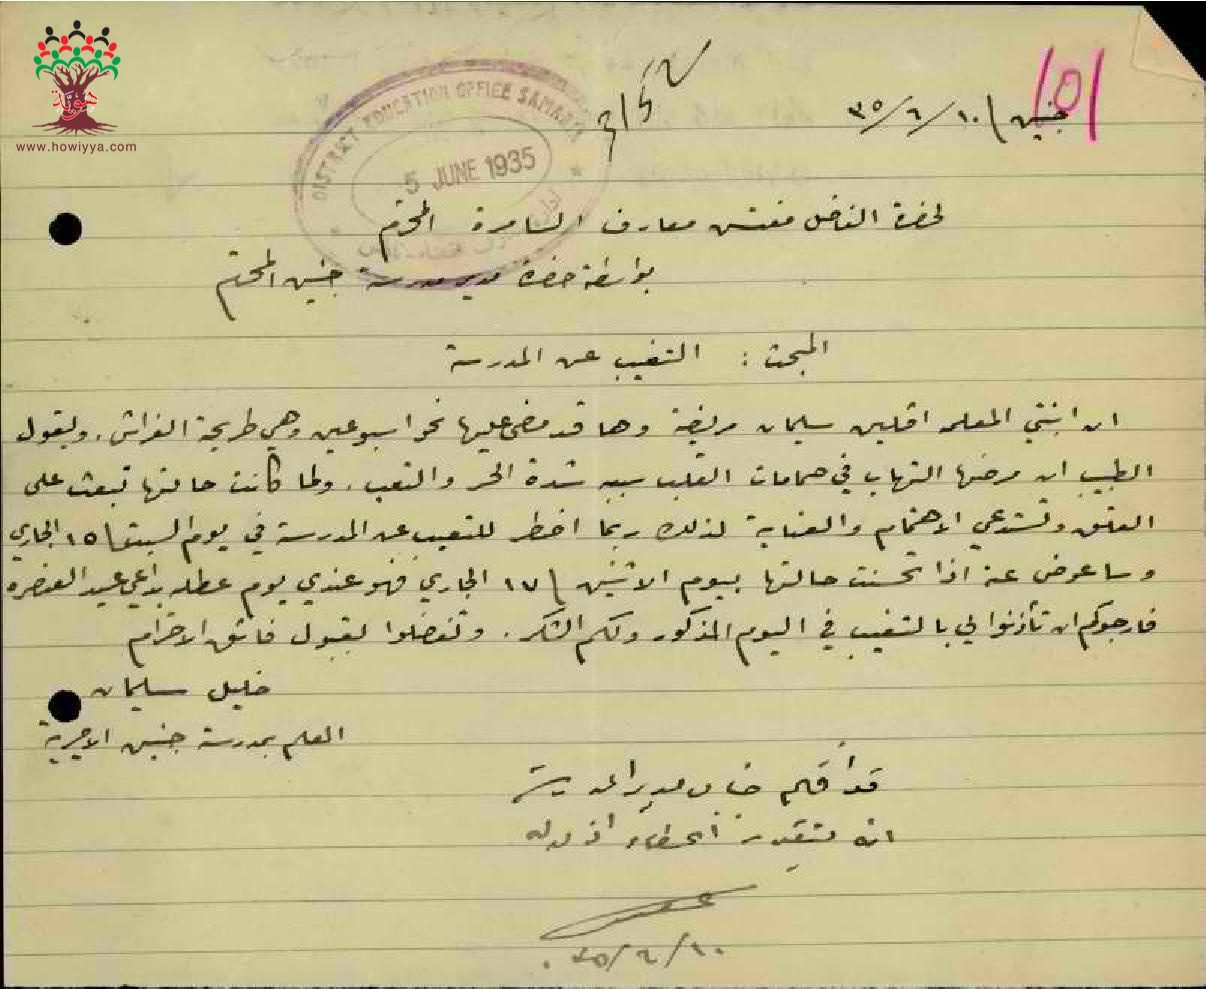 www.howiyya.com
DISTRICT EDUCATION OFFICE SAMARIA
5 JUNE 1935
جنين ١٠/٦/٣٥
لحضرة الفاضل مفتش معارف السامرة المحترم
بواسطة حضرة مدير مدرسة جنين المحترم
المبحث : التغيب عن المدرسة
ان ابنتي المعلمه اقلين سليمان مريضة وها قد مضى عليها نحو اسبوعين وهي طريحة الفراش. ويقول
الطبيب ان مرضها التهاب في صمامات القلب سببه شدة الحر والتعب. ولما كانت حالتها تبعث على
القلق وتستدعي الاهتمام والعناية لذلك ربما اضطر للتغيب عن المدرسة في يوم السبت ١٥ الجاري
وساعوض عنه اذا تحسنت حالتها بيوم الاثنين ١٧ الجاري فهو عندي يوم عطله بداعي عيد العنصره
فارجوكم ان تأذنوا لي بالتغيب في اليوم المذكور ولكم الشكر. وتفضلوا بقبول فائق الاحترام
خليل سليمان
المعلم بمدرسة جنين الاميرية
مدير المدرسة
١٠/٦/٣٥